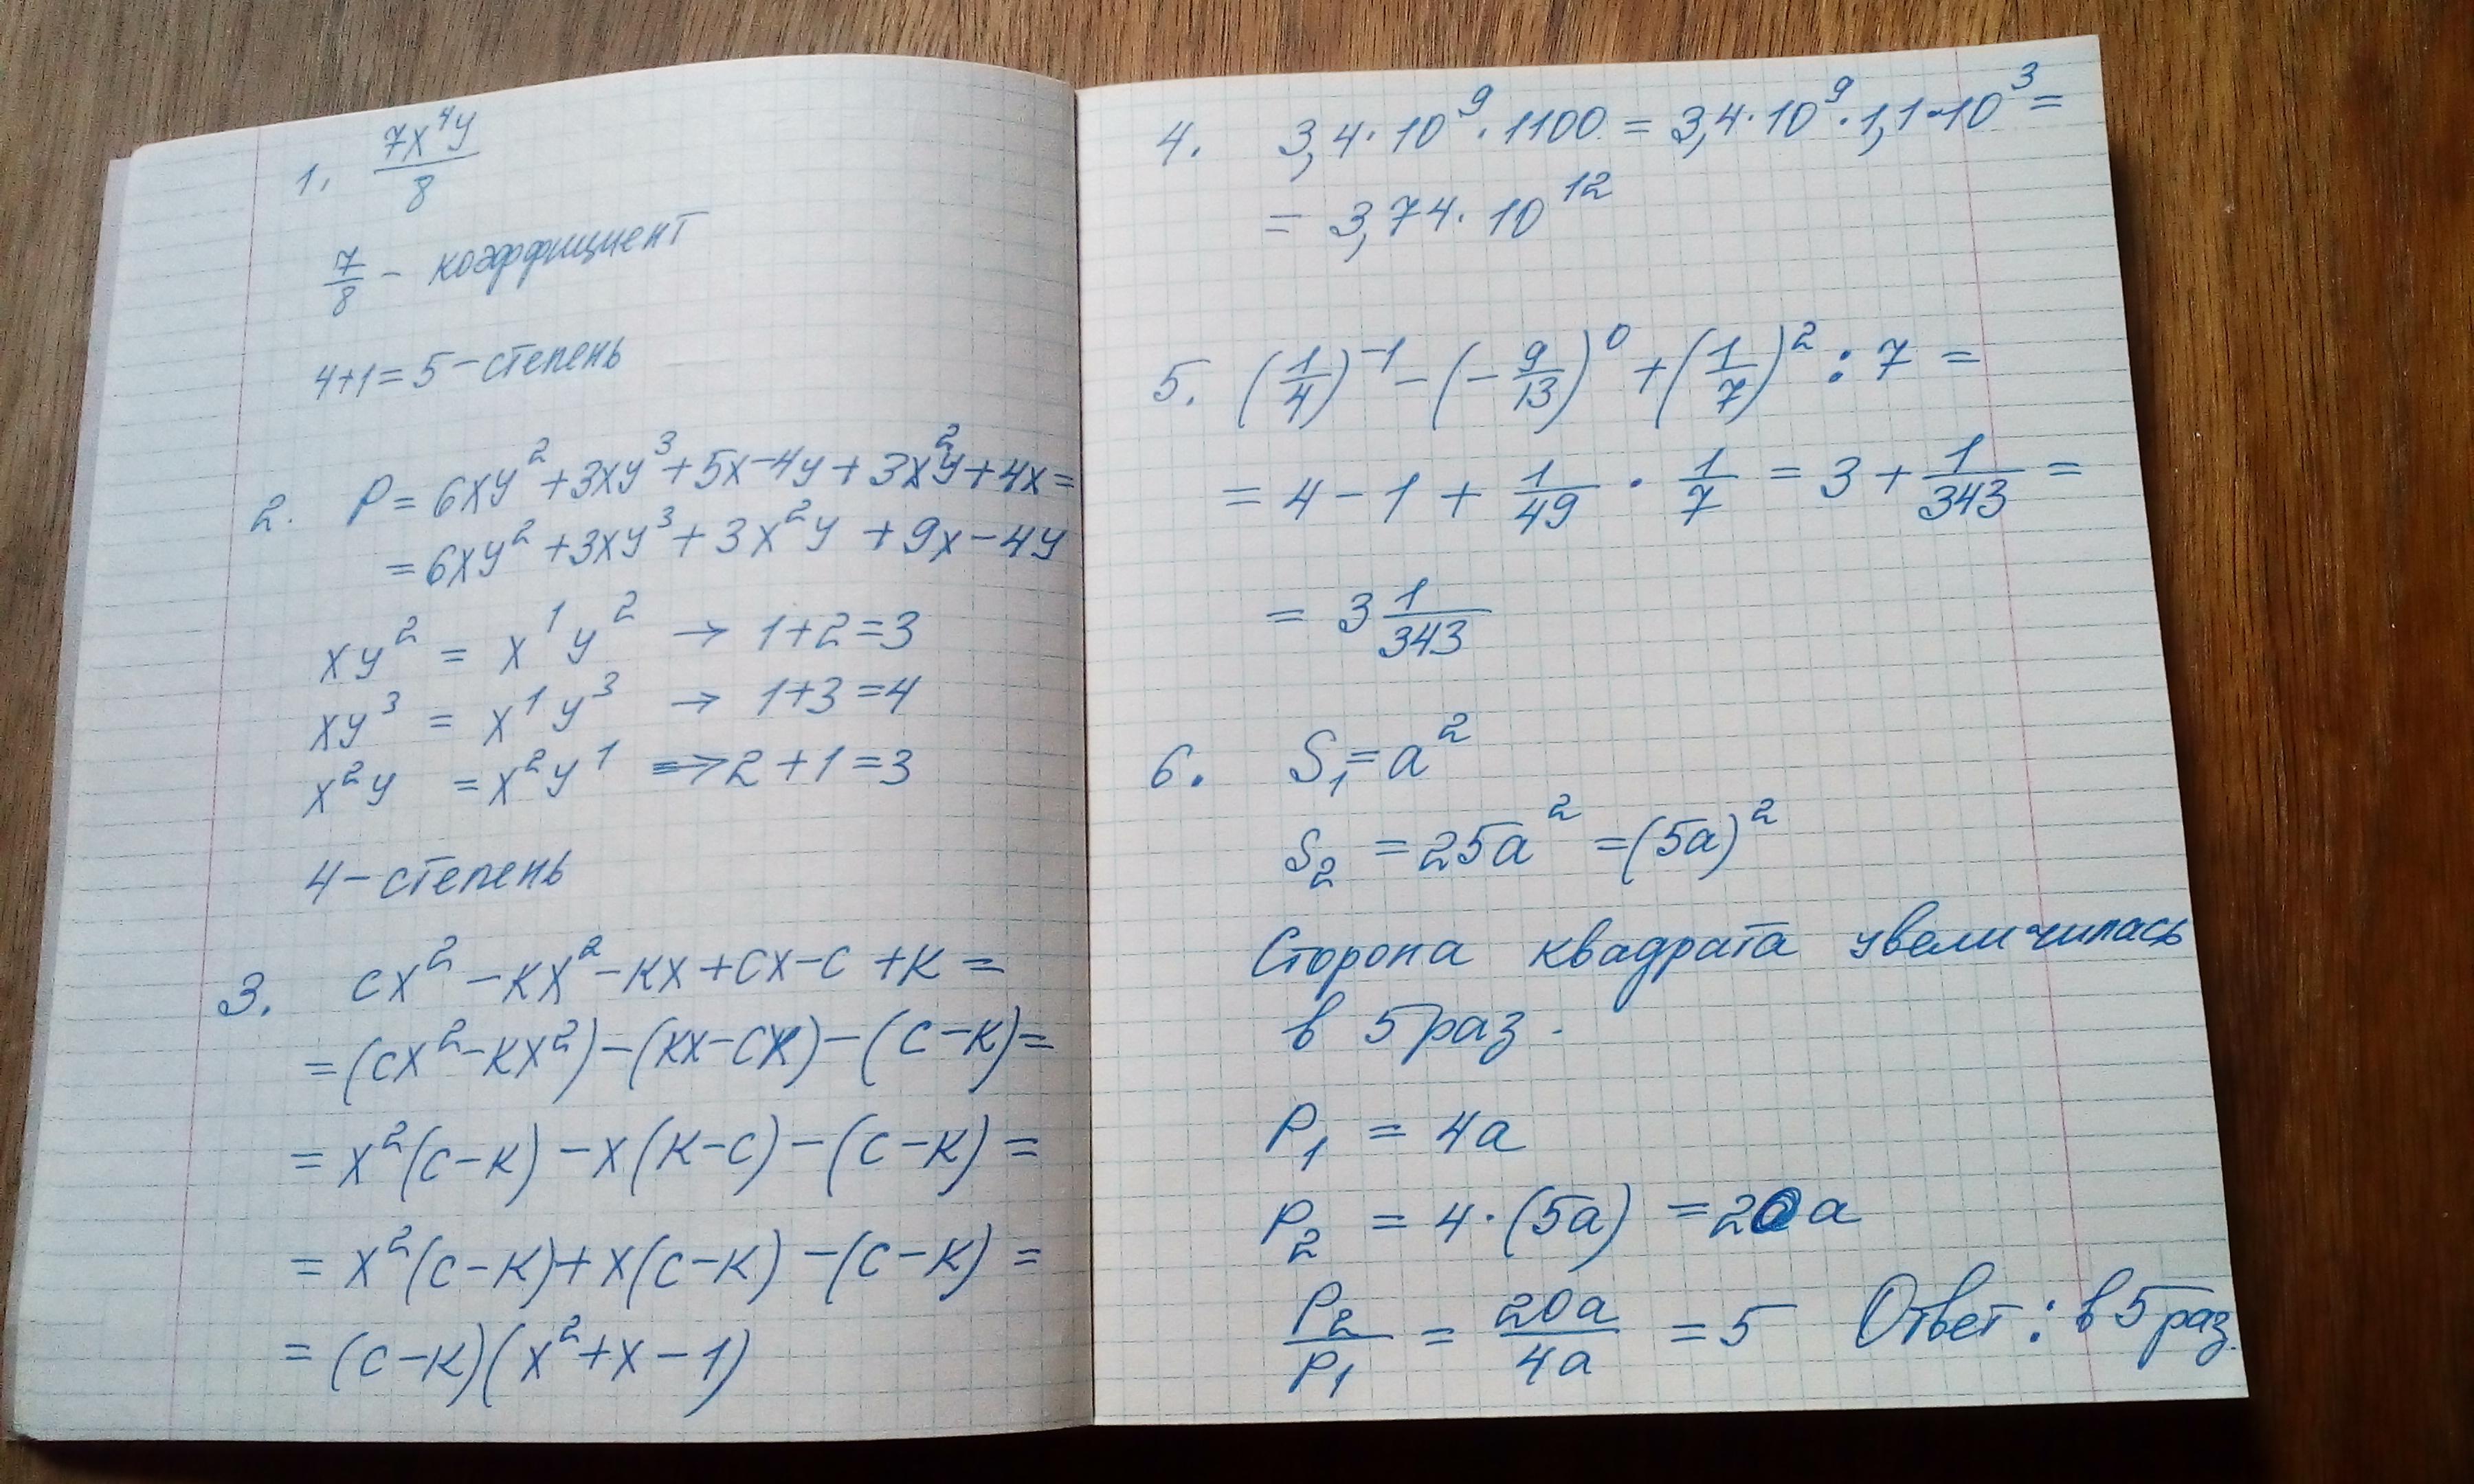 1. 7x⁴y/8
7/8 - коэффициент
4+1=5-степень
2. P = 6xy² + 3xy³ + 5x - 4y + 3x²y + 4x =
= 6xy² + 3xy³ + 3x²y + 9x - 4y
xy² = x¹y² → 1+2=3
xy³ = x¹y³ → 1+3=4
x²y = x²y¹ => 2+1=3
4 - степень
3. cx² - кx² - кx + cx - c + к =
= (cx² - кx²) - (кx - cx) - (c - к) =
= x²(c - к) - x(к - c) - (c - к) =
= x²(c - к) + x(c - к) - (c - к) =
= (c - к)(x² + x - 1)
4. 3,4·10⁹·1100 = 3,4·10⁹·1,1·10³ =
= 3,74·10¹²
5. (1/4)⁻¹ - (-9/13)⁰ + (1/7)² : 7 =
= 4 - 1 + 1/49 · 1/7 = 3 + 1/343 =
= 3 1/343
6. S₁ = a²
S₂ = 25a² = (5a)²
Сторона квадрата увеличилась
в 5 раз.
P₁ = 4a
P₂ = 4·(5a) = 20a
P₂/P₁ = 20a/4a = 5 Ответ: в 5 раз.